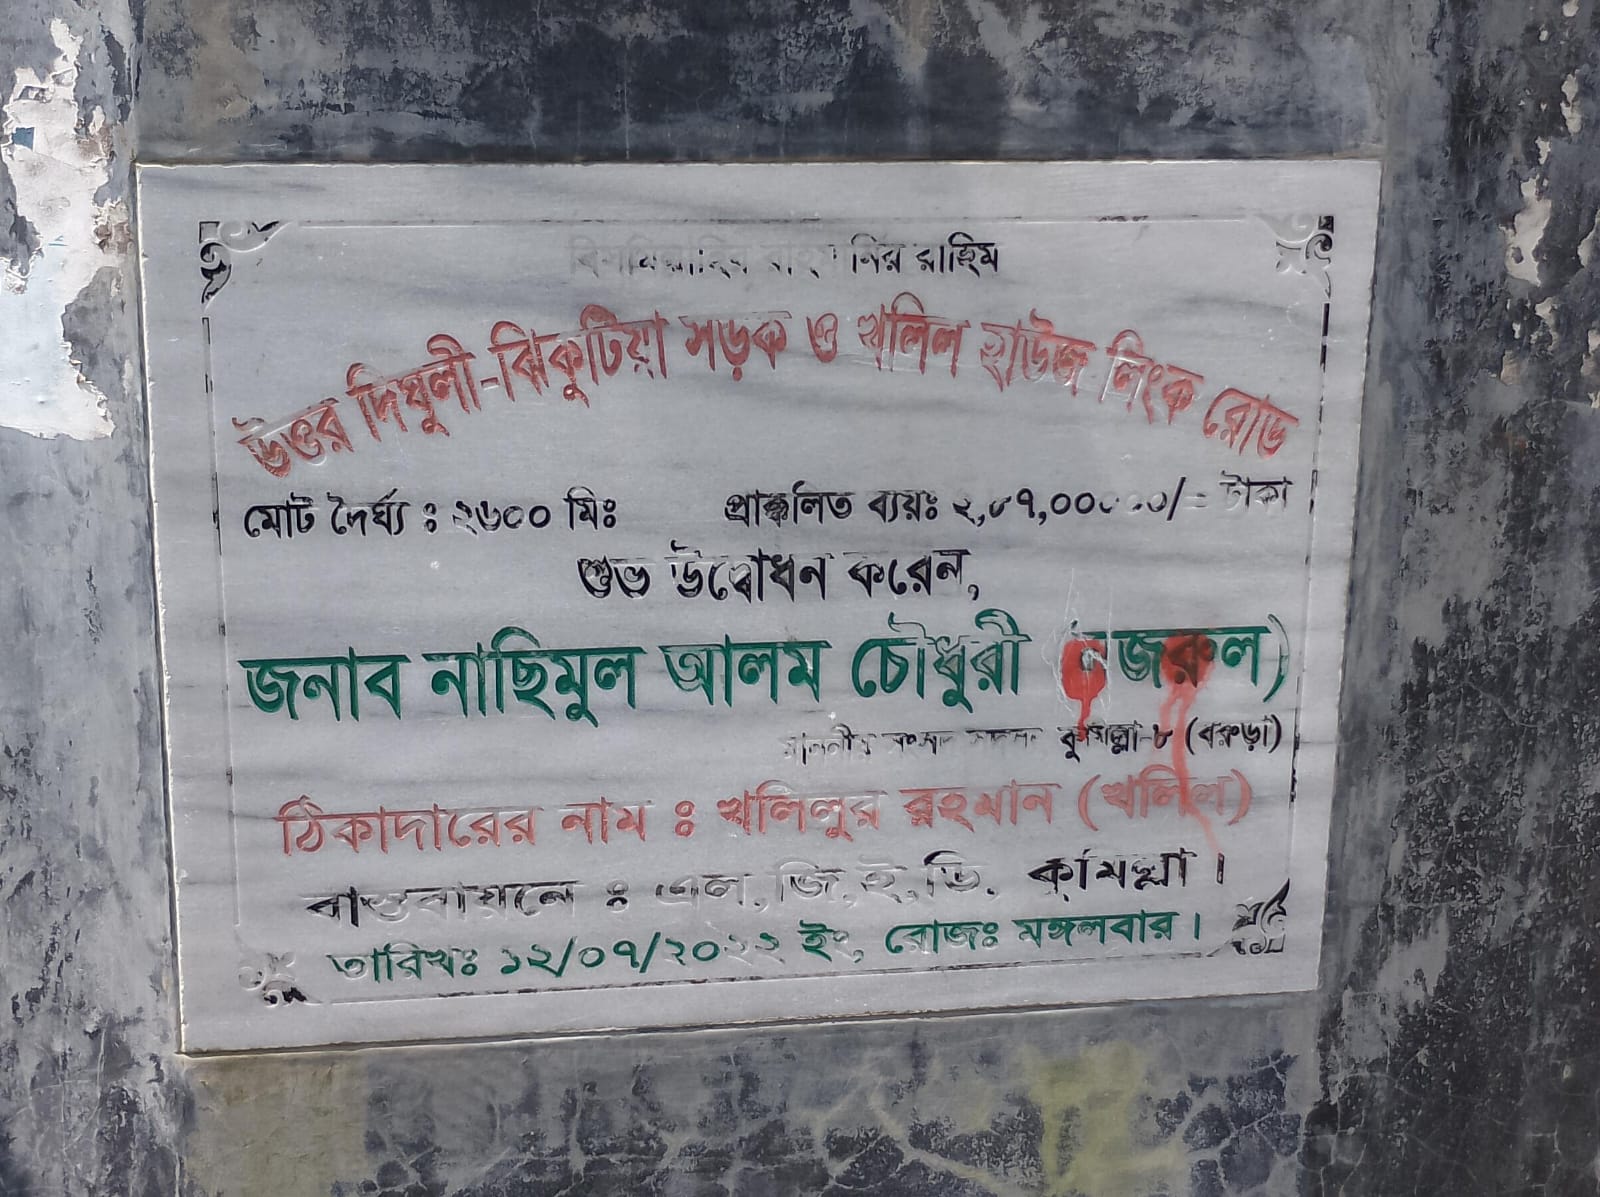 বিসমিল্লাহির রাহমানির রাহিম
উত্তর দিঘুলী-ঝিকুটিয়া সড়ক ও খলিল হাউজ লিংক রোড
মোট দৈর্ঘ্য : ২৬০০ মিঃ প্রাক্কলিত ব্যয়ঃ টাকা
শুভ উদ্বোধন করেন,
জনাব নাছিমুল আলম চৌধুরী (নজরুল)
মাননীয় সংসদ সদস্য কুমিল্লা-৮ (বরুড়া)
ঠিকাদারের নাম : খলিলুর রহমান (খলিল)
বাস্তবায়নে : এল.জি.ই.ডি. কুমিল্লা ।
তারিখঃ ১২/০৭/২০২২ ইং, রোজঃ মঙ্গলবার ।